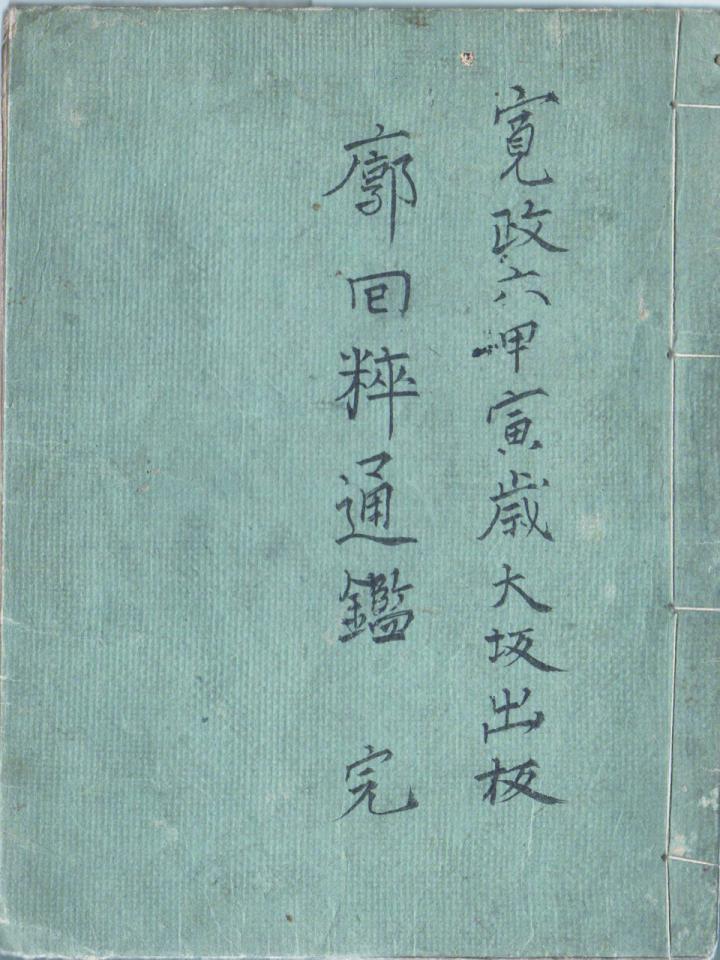 寛政六甲寅歳大坂出板
廓回粹通鑑 完